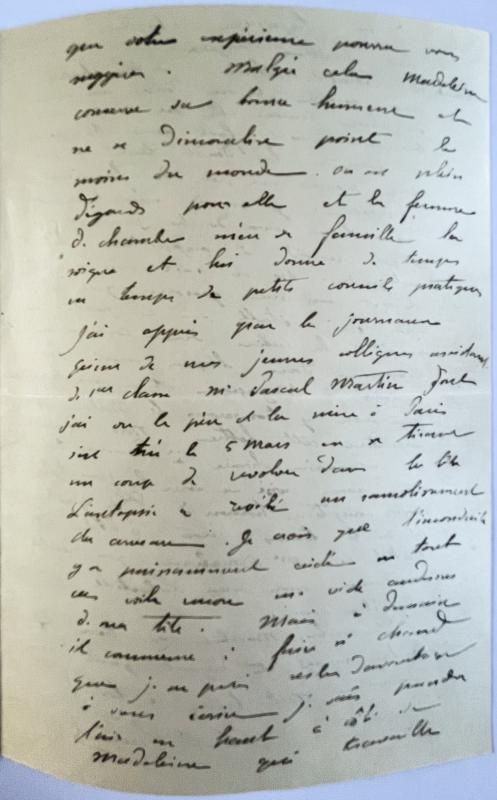 que votre expérience pourra vous
suggérer. Malgré cela Madeleine
conserve sa bonne humeur et
ne se démoralise point le
moins du monde. On est plein
d'égards pour elle et la femme
de chambre mère de famille la
soigne et lui donne de temps
en temps de petits conseils pratiques
J'ai appris par les journaux
de mes jeunes collègues assistant
de 1ère classe Mr Pascal Martin dont
j'ai vu le père et la mère à Paris
s'est tué le 5 Mars en se tirant
un coup de revolver dans la tête
L'autopsie a révélé un ramollissement
du cerveau. Je crois que
y a puissamment aidé en tout
cas voilà encore un vide
de ma tête. Mais
il commence à faire si chaud
que je ne puis rester davantage
à vous écrire je vais prendre
l'air en haut à côté de
Madeleine qui travaille